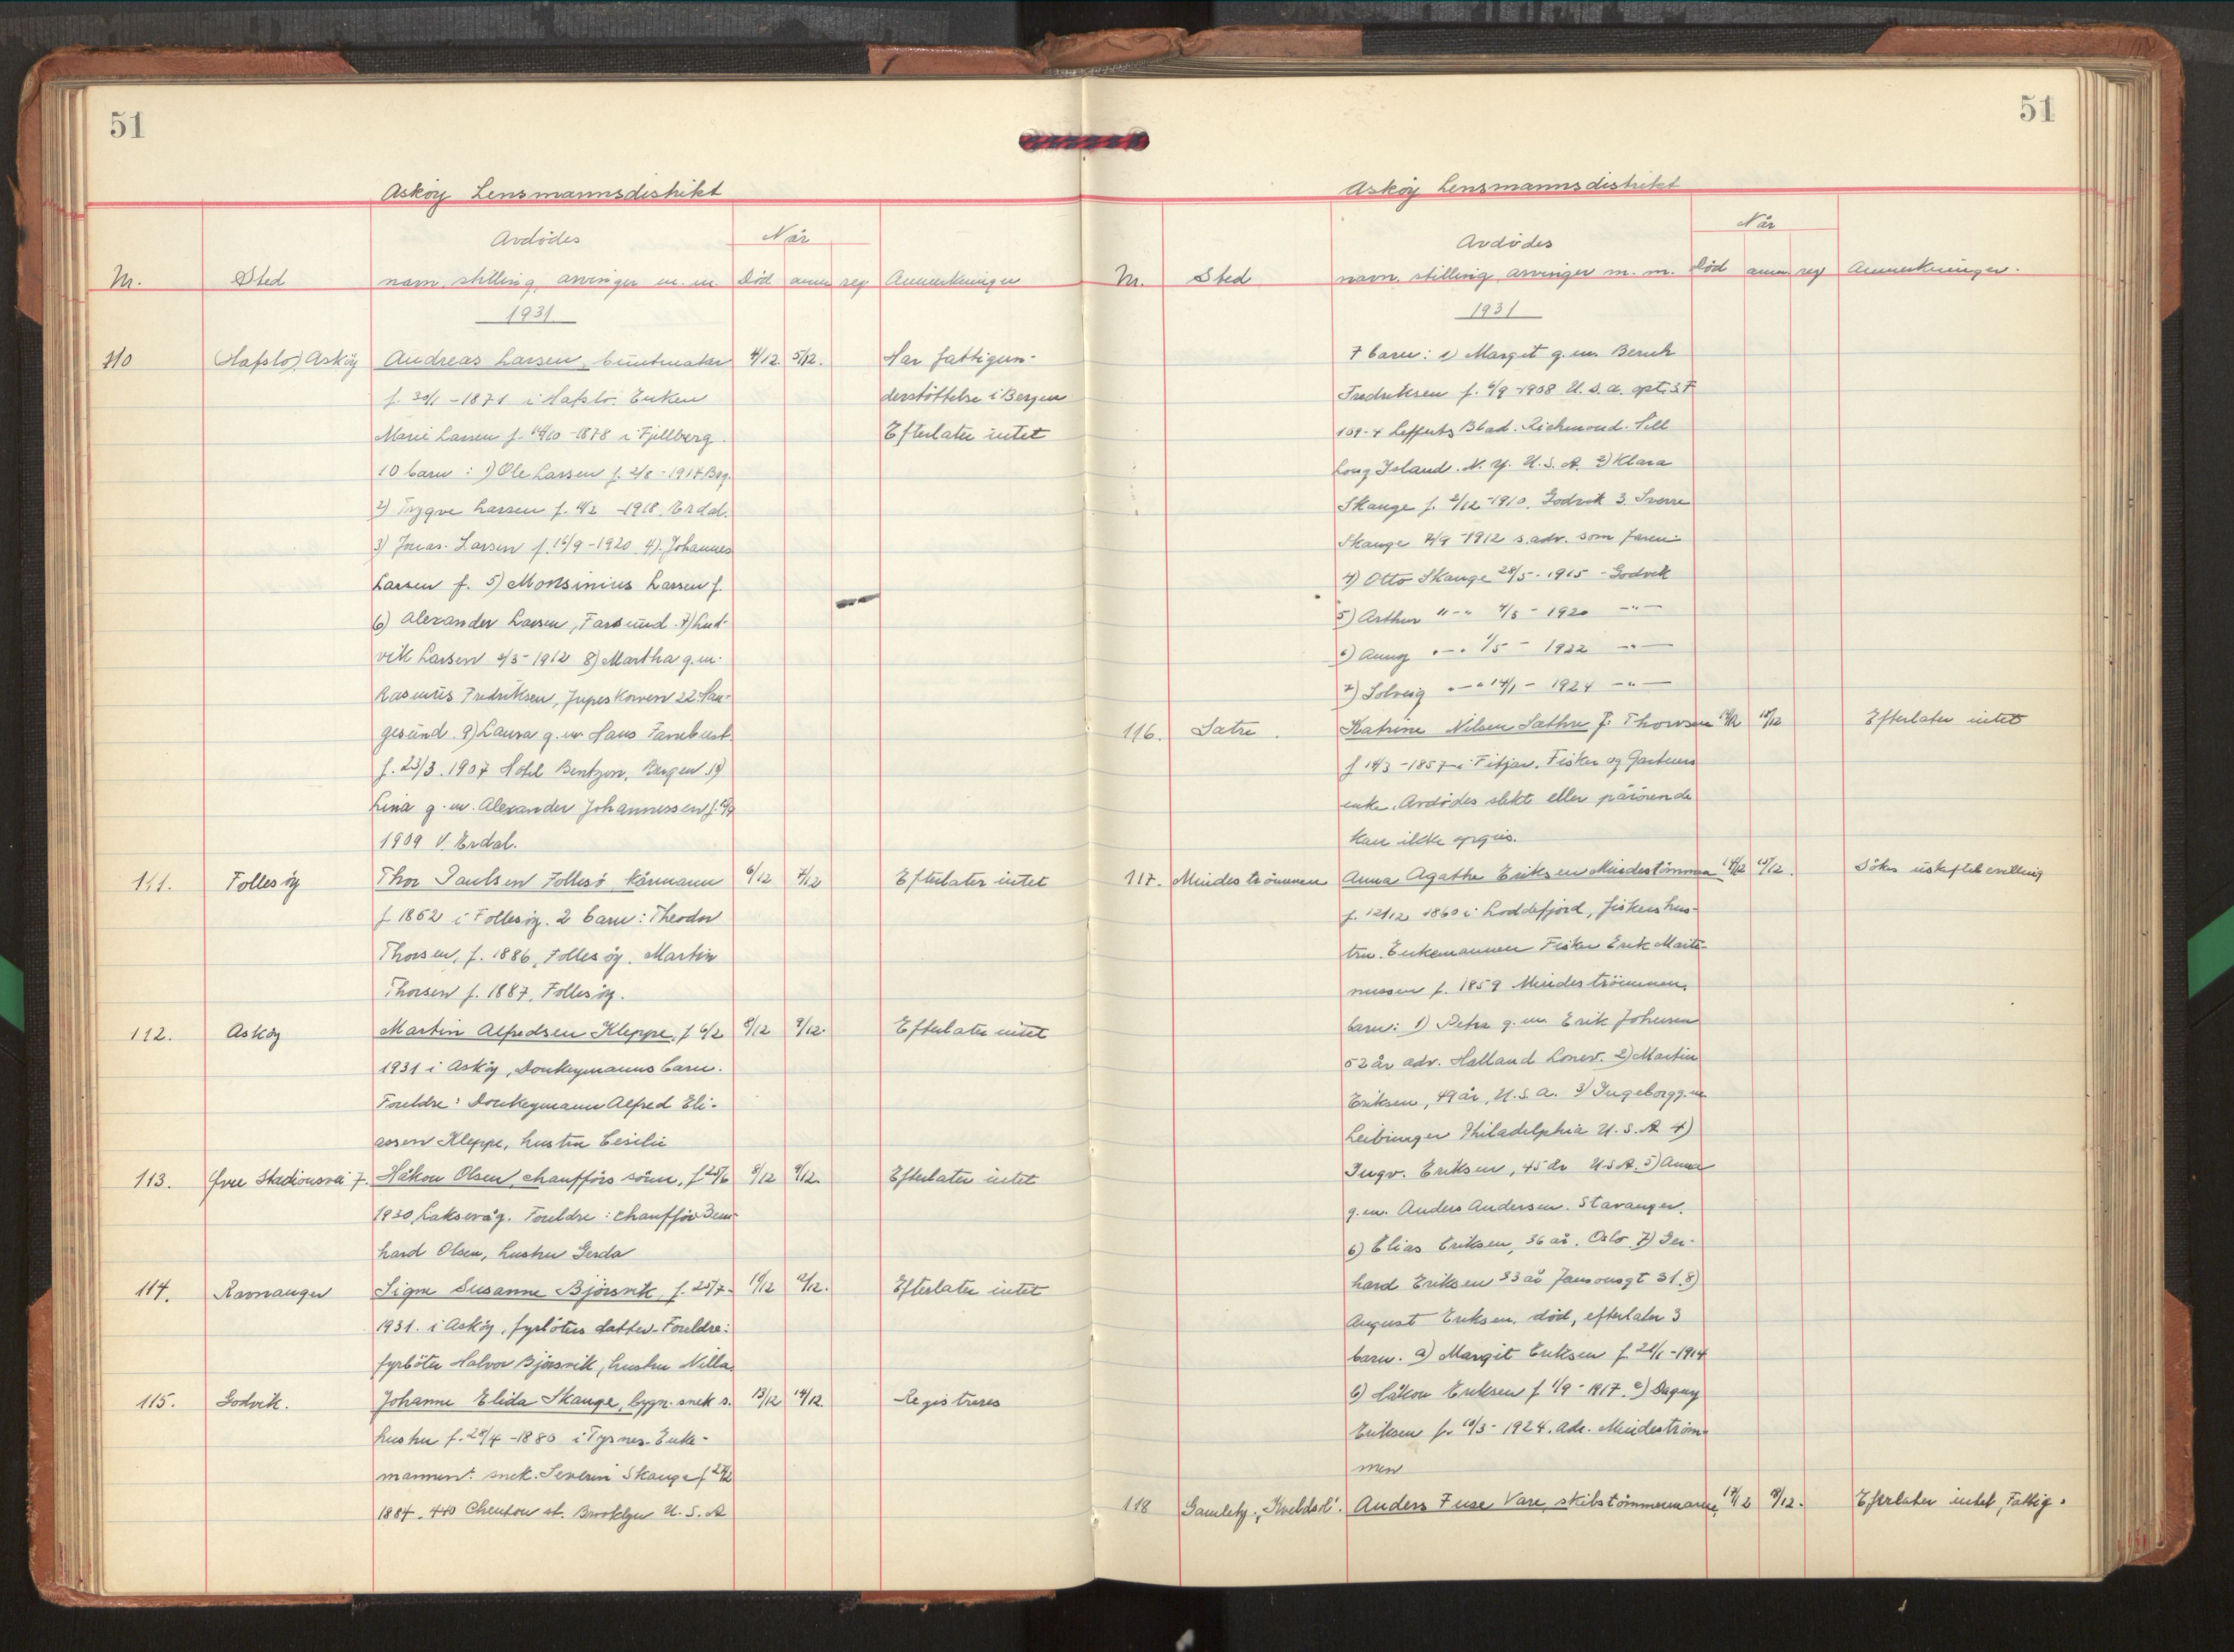 51
Askøy Lensmannsdistrikt
Avdødes
Når
Nr. Sted navn, stilling, arvinger m. m. Död anm reg Anmerkninger
1931
110 (Hafslo) Askøy Andreas Larsen, buntmaker 4/12. 5/12. Har fattigun-
f. 30/1 - 1871 i Hafslo. Enken derstøttelse i Bergen
Marie Larsen f. /10 - 1878 i Fjellberg. Efterlater intet
10 barn: 1) Ole Larsen f. 2/8 - 1914 Berg.
2) Trygve Larsen f. - 1918, Erdal.
3) Jonas Larsen f. 16/9 - 1920 4) Johannes
Larsen f. 5) Monsinius Larsen f.
6) Alexander Larsen, Farsund. 7) Lud-
vik Larsen 2/3 - 1912 8) Martha g. m.
Rasmus Fredriksen, 22 Hau-
gesund. 9) Laura g. m. Hans
f. 23/3. 1907 Hotel Bentzon, Bergen 10)
Lina g. m. Alexander Johannessen f.
1909 V. Erdal.
111. Follesöy Thor Paulsen Follesö kårmann 6/12 7/12 Efterlater intet
f 1852 i Follesøy. 2 barn: Theodor
Thorsen, f. 1886, Follesøy. Martin
Thorsen f. 1887, Follesøy.
112. Askøy Martin Alfredsen Kleppe, f 6/2 8/12 9/12. Efterlater intet
1931 i Askøy, Donkeymanns barn.
Foreldre: Donkeymann Alfred Eli-
assen Kleppe, hustru Cesilie
113. Övre Stadionsvei 7. Håkon Olsen, chaufförs sönn, f 25/6 8/12 9/12. Efterlater intet
1930, Laksevåg. Foreldre: Chauffør Bern-
hard Olsen, hustru Gerda
114. Ravnanger Signe Susanne Bjørsvik, f. 25/7. 11/12 12/12. Efterlater intet
1931. i Askøy, fyrbøters datter. Foreldre:
fyrbøter Halvor Bjørsvik, hustru Nilla.
115. Godvik. Johanne Elida Skauge, bygn. snek s. 13/12 14/12. Registreres
hustru f. 28/4 - 1880 i Tysnes. Enke-
mannen: snek. Severin Skauge f 27/2
1884. 440 Chenton st. Brooklyn U. S. A
51
Askøy Lensmannsdistrikt
Når
Avdødes
Nr. Sted navn, stilling, arvinger m. m. Död anm. reg Anmerkninger.
1931
7 barn: 1) Margit g. m. Bernh
Fredriksen f. 6/9 - 1908 U. S. A. apt. 3 F
109-4 Lefferts Blad. Richmond. Hill
Long Island. N. Y. U. S. A. 2) Klara
Skauge f. 2/12 - 1910, Godvik 3. Sverre
Skauge 4/9 - 1912 s. adr. som faren
4) Otto Skauge 28/5 - 1915 - Godvik
5) Arthur " - " 4/3 - 1920 - " -
6) Anny " - " 1/5 - 1922 - " -
7) Solveig " - " 14/1 - 1924 - " -
116. Sætre. Katrine Nilsen Sæthre f. Thorsen 14/12 15/12 Efterlater intet
f 14/3 - 1857 i Fitjar. Fisker og Gartners
enke. Avdødes slekt eller pårørende
kan ikke opgis.
117. Mindeströmmen Anna Agathe Eriksen Mindeströmmen 14/12 15/12. Søker uskiftebevilling
f. 12/12 1860 i Loddefjord, fiskers hus-
tru. Enkemannen Fisker Erik Marti-
nussen f. 1859 Mindeströmmen.
barn: 1) Petra g. m. Erik Johnsen
52 år adr. Halland Lonev. 2) Martin
Eriksen, 49 år, U. S. A. 3) Ingeborg g. m.
Leibinger Philadelphia U. S. A. 4)
Ingv. Eriksen, 45 år U.S.A. 5) Anna
g. m. Anders Andersen. Stavanger.
6) Elias Eriksen, 36 år. Oslo 7) Ger-
hard Eriksen 33 år Jansonsgt 31. 8)
August Eriksen, död, efterlater 3
barn. a) Margit Eriksen f. 21/1 - 1914
b) Håkon Eriksen f 1/9 - 1917. c) Dagny
Eriksen f. 10/3 - 1924. adr. Mindeström-
men
118 Gamlehj. "Kveldsol". Anders Fuse Vare, skibstömmermann, 17/12 18/12. Efterlater intet, Fattig.